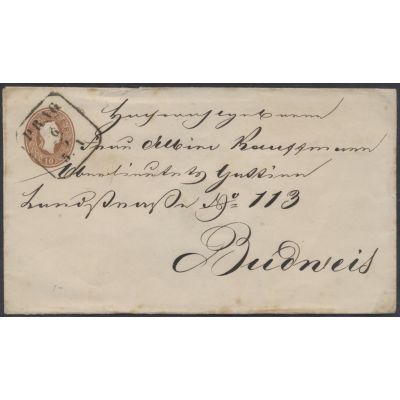 PRAG
6
5. A
10
Hochwohlgeboren
Frau Albine Kauffmann
Oberlieutnts Gattinn
Landstraße No 113
Budweis